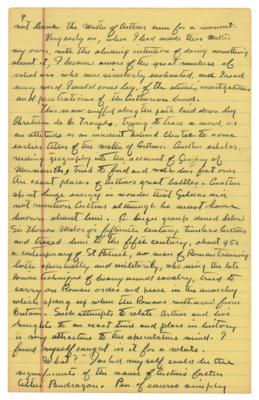 9
not leave the Matter of Arthur even for a moment.
Very early on, when I had made this matter
my own, with the abiding intention of doing something
about it, I became aware of the great numbers of
scholars who were similarly enchanted, and I read
every word I could come by, of the studies, investigations
and penetrations of the Arthurian bend.
One man sniffed along the path laid down by
Chretien de Troyes, trying to trace a word, or
an attitude or an incident behind Chretien to some
earlier teller of the matter of Arthur. Another scholar,
reading geography into the account of Geoffrey of
Monmouth, tried to find and walk his feet over
the exact places of Arthur's great battles. Another
spent huge energy in wonder that Gildas did
not mention Arthur although he must have
known about him. A larger group dived below
Sir Thomas Malory's fifteenth century timeless Arthur
and traced him to the fifth century, about 450
a contemporary of St Patrick, a man of Roman training
both spiritually, and militarily, who using the late
Roman techniques of heavy armed cavalry, tried to
carry on Roman order and peace in the anarchy
which sprang up when the Romans withdrew from
Britain. Such attempts to relate Arthur and his
knights to an exact time and place in history
is very attractive to the speculative mind. I
found myself caught in it for a while.
What? I asked myself could be the
significance of the name of Arthur's father
Uther Pendragon. Pen of course simply